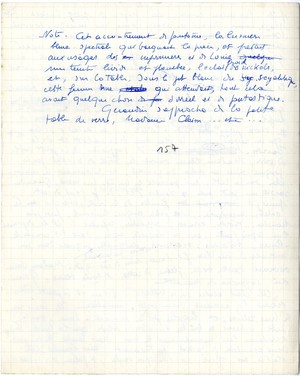 Note. Cet accoutrement de fantôme, la lumière
bleue spectrale qui baignait la pièce, et prêtait
aux visages des infirmiers et de Louise
une teinte livide et plombée, l'éclat du nickel,
et, sur la table, dans le jet blanc du
cette femme nue qui attendait, tout cela
avait quelque chose d'irréel et de fantastique.
s'approcha de la petite
table de verre,
157